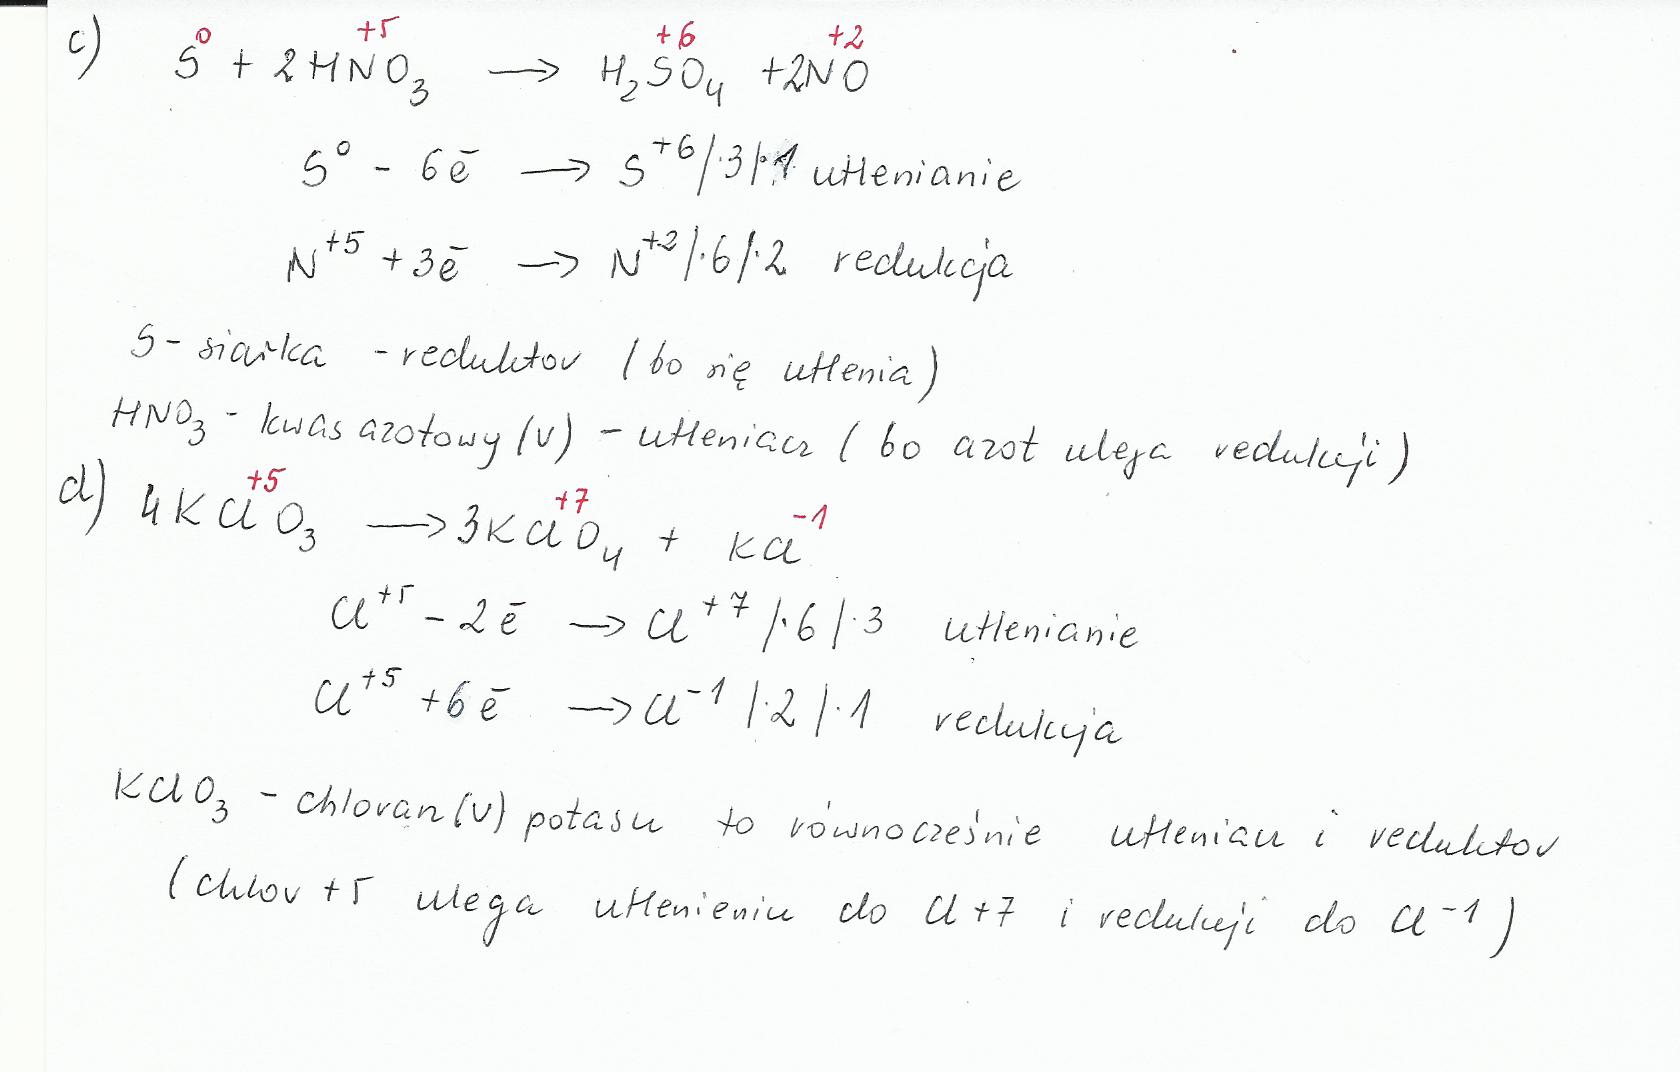 c) S⁰ + 2HN⁺⁵O₃ → H₂S⁺⁶O₄ + 2N⁺²O
S⁰ - 6ē → S⁺⁶ /·3/·1 utlenianie
N⁺⁵ + 3ē → N⁺² /·6/·2 redukcja
S - siarka - reduktor (bo się utlenia)
HNO₃ - kwas azotowy (V) - utleniacz (bo azot ulega redukcji)
d) 4KCl⁺⁵O₃ → 3KCl⁺⁷O₄ + KCl⁻¹
Cl⁺⁵ - 2ē → Cl⁺⁷ /·6/·3 utlenianie
Cl⁺⁵ + 6ē → Cl⁻¹ /·2/·1 redukcja
KClO₃ - chloran (V) potasu to równocześnie utleniacz i reduktor
(chlor +5 ulega utlenieniu do Cl +7 i redukcji do Cl -1)